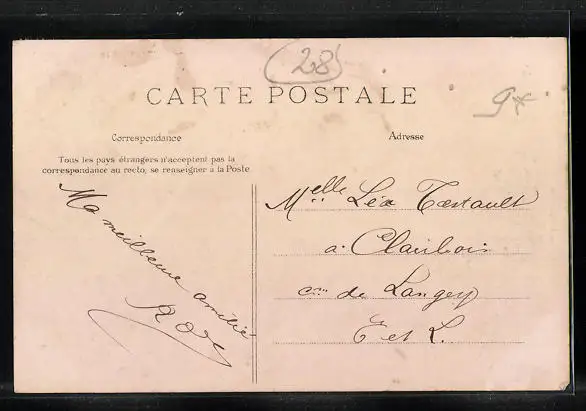 28
CARTE POSTALE
Correspondance
Adresse
Tous les pays étrangers n'acceptent pas la
correspondance au recto, se renseigner à la Poste
Ma meilleure amitié
Melle Léa
à Clairbois
cne de Langey
E et L.